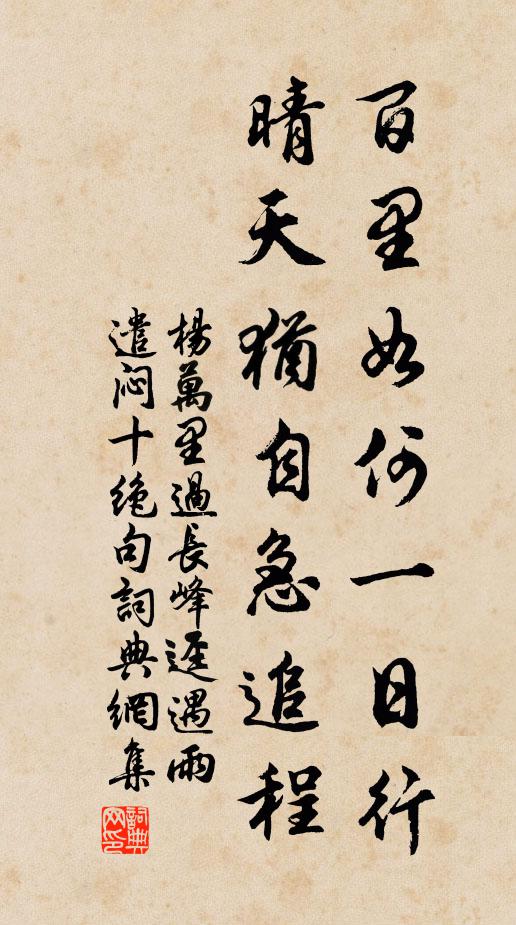 百里如何一日行
晴天猶自急追程
楊萬里過長峰逕遇雨
遣悶十絶句詞典網集
詞典网印